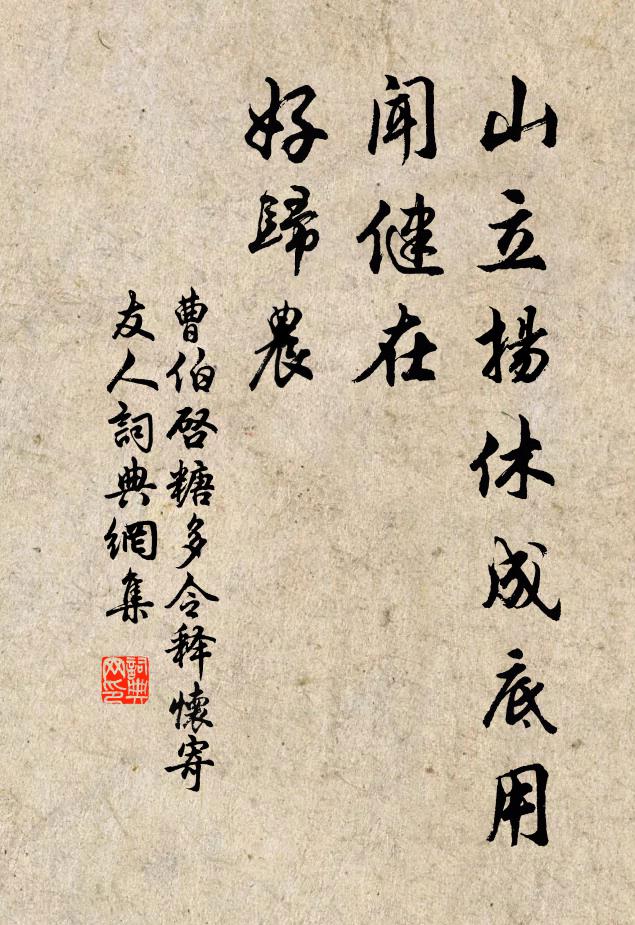 山立揚休成底用
聞健在
好歸農
曹伯啓糖多令释懷寄
友人詞典網集
詞典网印